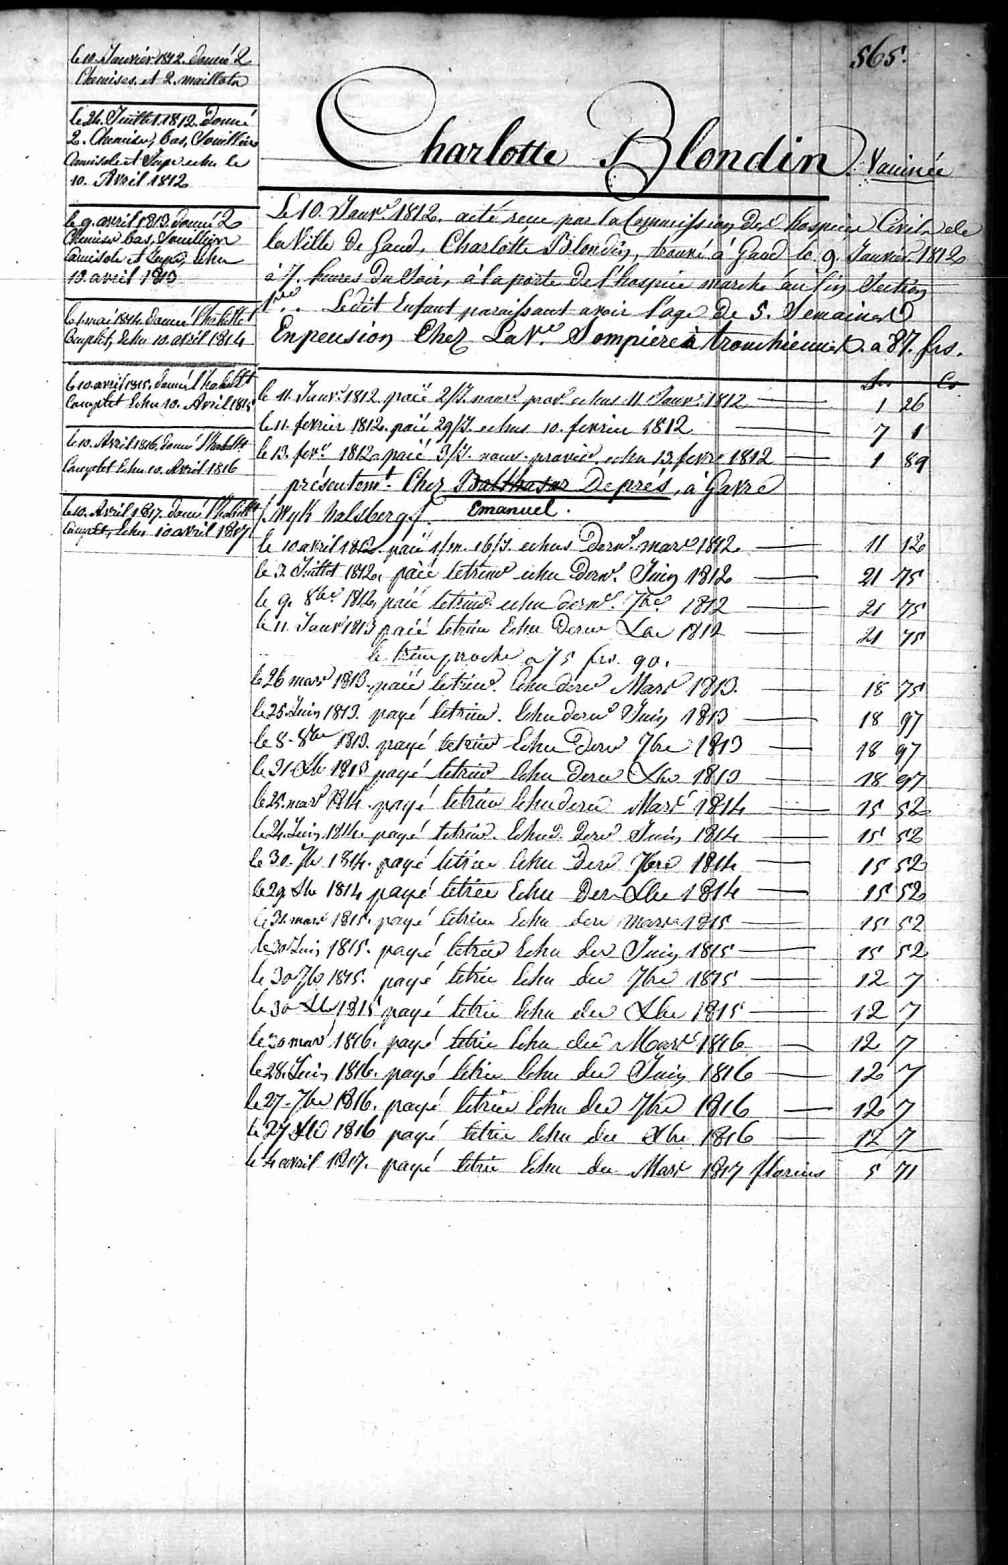 565.
Charlotte Blondin. Vaccinée
le 10 Janvier 1812. donné 2
Chemises et 2. maillots
le 24. Juillet 1812. Donné
2. Chemises, bas,
Camisole et Jupe echu le
10. Avril 1812
le 9. avril 1813 donné 2
Chemises bas,
Camisole et Jupe, echu
10. avril 1813
le 1 mai 1814. donné l'habillt
Complet, Echu 10. avril 1814
le 10. avril 1815. donné l'habillt
Complet Echu 10. Avril 1815
le 10. Avril 1816. donné l'habillt
Complet Echu 10. Avril 1816
le 10. Avril 1817. donné l'habillt
Complet, Echu 10 avril 1817
Le 10. Janvr. 1812. a été recue par la Commission des hospices Civils de
la Ville de Gand, Charlotte Blondin, trouvé à Gand le 9. Janvier 1812
à 7. heures du Soir, à la porte de l'hospice marché au lin Section
1re. Ledit Enfant paraissant avoir l'age de 5. Semaines
En pension Chez La Ve. Sompiere à tronchiennes. a 87. frs.
frs Cs
le 11. Janvr. 1812. paié 2/J. echus 11 Janvr. 1812 — 1 26
le 11. fevrier 1812. paié 29/J. echus 10. fevrier 1812 — 7 1
le 13. fevr. 1812 paié 3/J. echu 13. fevr. 1812 — 1 89
présentemt. Chez Balthasar Deprés, à Gavre
(Wyk halsberg). Emanuel.
le 10 avril 1812. paié 1/m. 16/J. echus dernr. mars 1812. — 11 12
le 2 Juillet 1812, paié letrimr echu Dernr. Juin 1812 — 21 75
le 9. 8bre 1812, paié letrimr echu dernr. 7bre 1812 — 21 75
le 11. Janvr 1813 paié letrim Echu Dernr Xbre 1812 — 21 75
le trim proche a 75 frs. 90.
le 26 mars 1813. paié letrimr. Echu dernr Mars 1813. — 18 75
le 25. Juin 1813. payé letrim. Echu dernr Juin 1813 — 18 97
le 8. 8bre 1813. payé letrim Echu Dernr 7bre 1813 — 18 97
le 31 Xbre 1813 payé letrim Echu Dernr Xbre 1813 — 18 97
le 25. mars 1814. payé letrim Echu dernr Mars 1814 — 15 52
le 24. Juin 1814. payé letrim. Echu dernr Juin 1814 — 15 52
le 30. 7bre 1814. payé letrim Echu Dernr 7bre 1814 — 15 52
le 29 Xbre 1814 payé letrim Echu Der Xbre 1814 — 15 52
le 31. mars 1815. payé letrim Echu der mars 1815 — 15 52
le 30 Juin 1815. payé letrim Echu der Juin 1815 — 15 52
le 30 7bre 1815. payé letrim Echu der 7bre 1815 — 12 7
le 30 Xbre 1815 payé letrim Echu der Xbre 1815 — 12 7
le 30 mars 1816. payé letrim Echu der Mars 1816 — 12 7
le 28. Juin 1816. payé letrim Echu der Juin 1816 — 12 7
le 27. 7bre 1816. payé letrim Echu der 7bre 1816 — 12 7
le 27 Xbre 1816 payé letrim Echu der Xbre 1816 — 12 7
le 4 avril 1817. payé letrim Echu der Mars 1817 florins 5 71